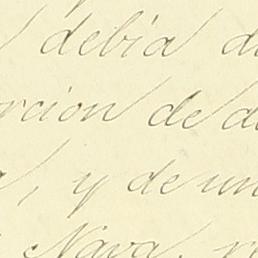 debia
rcion de
, y de un
Nava.